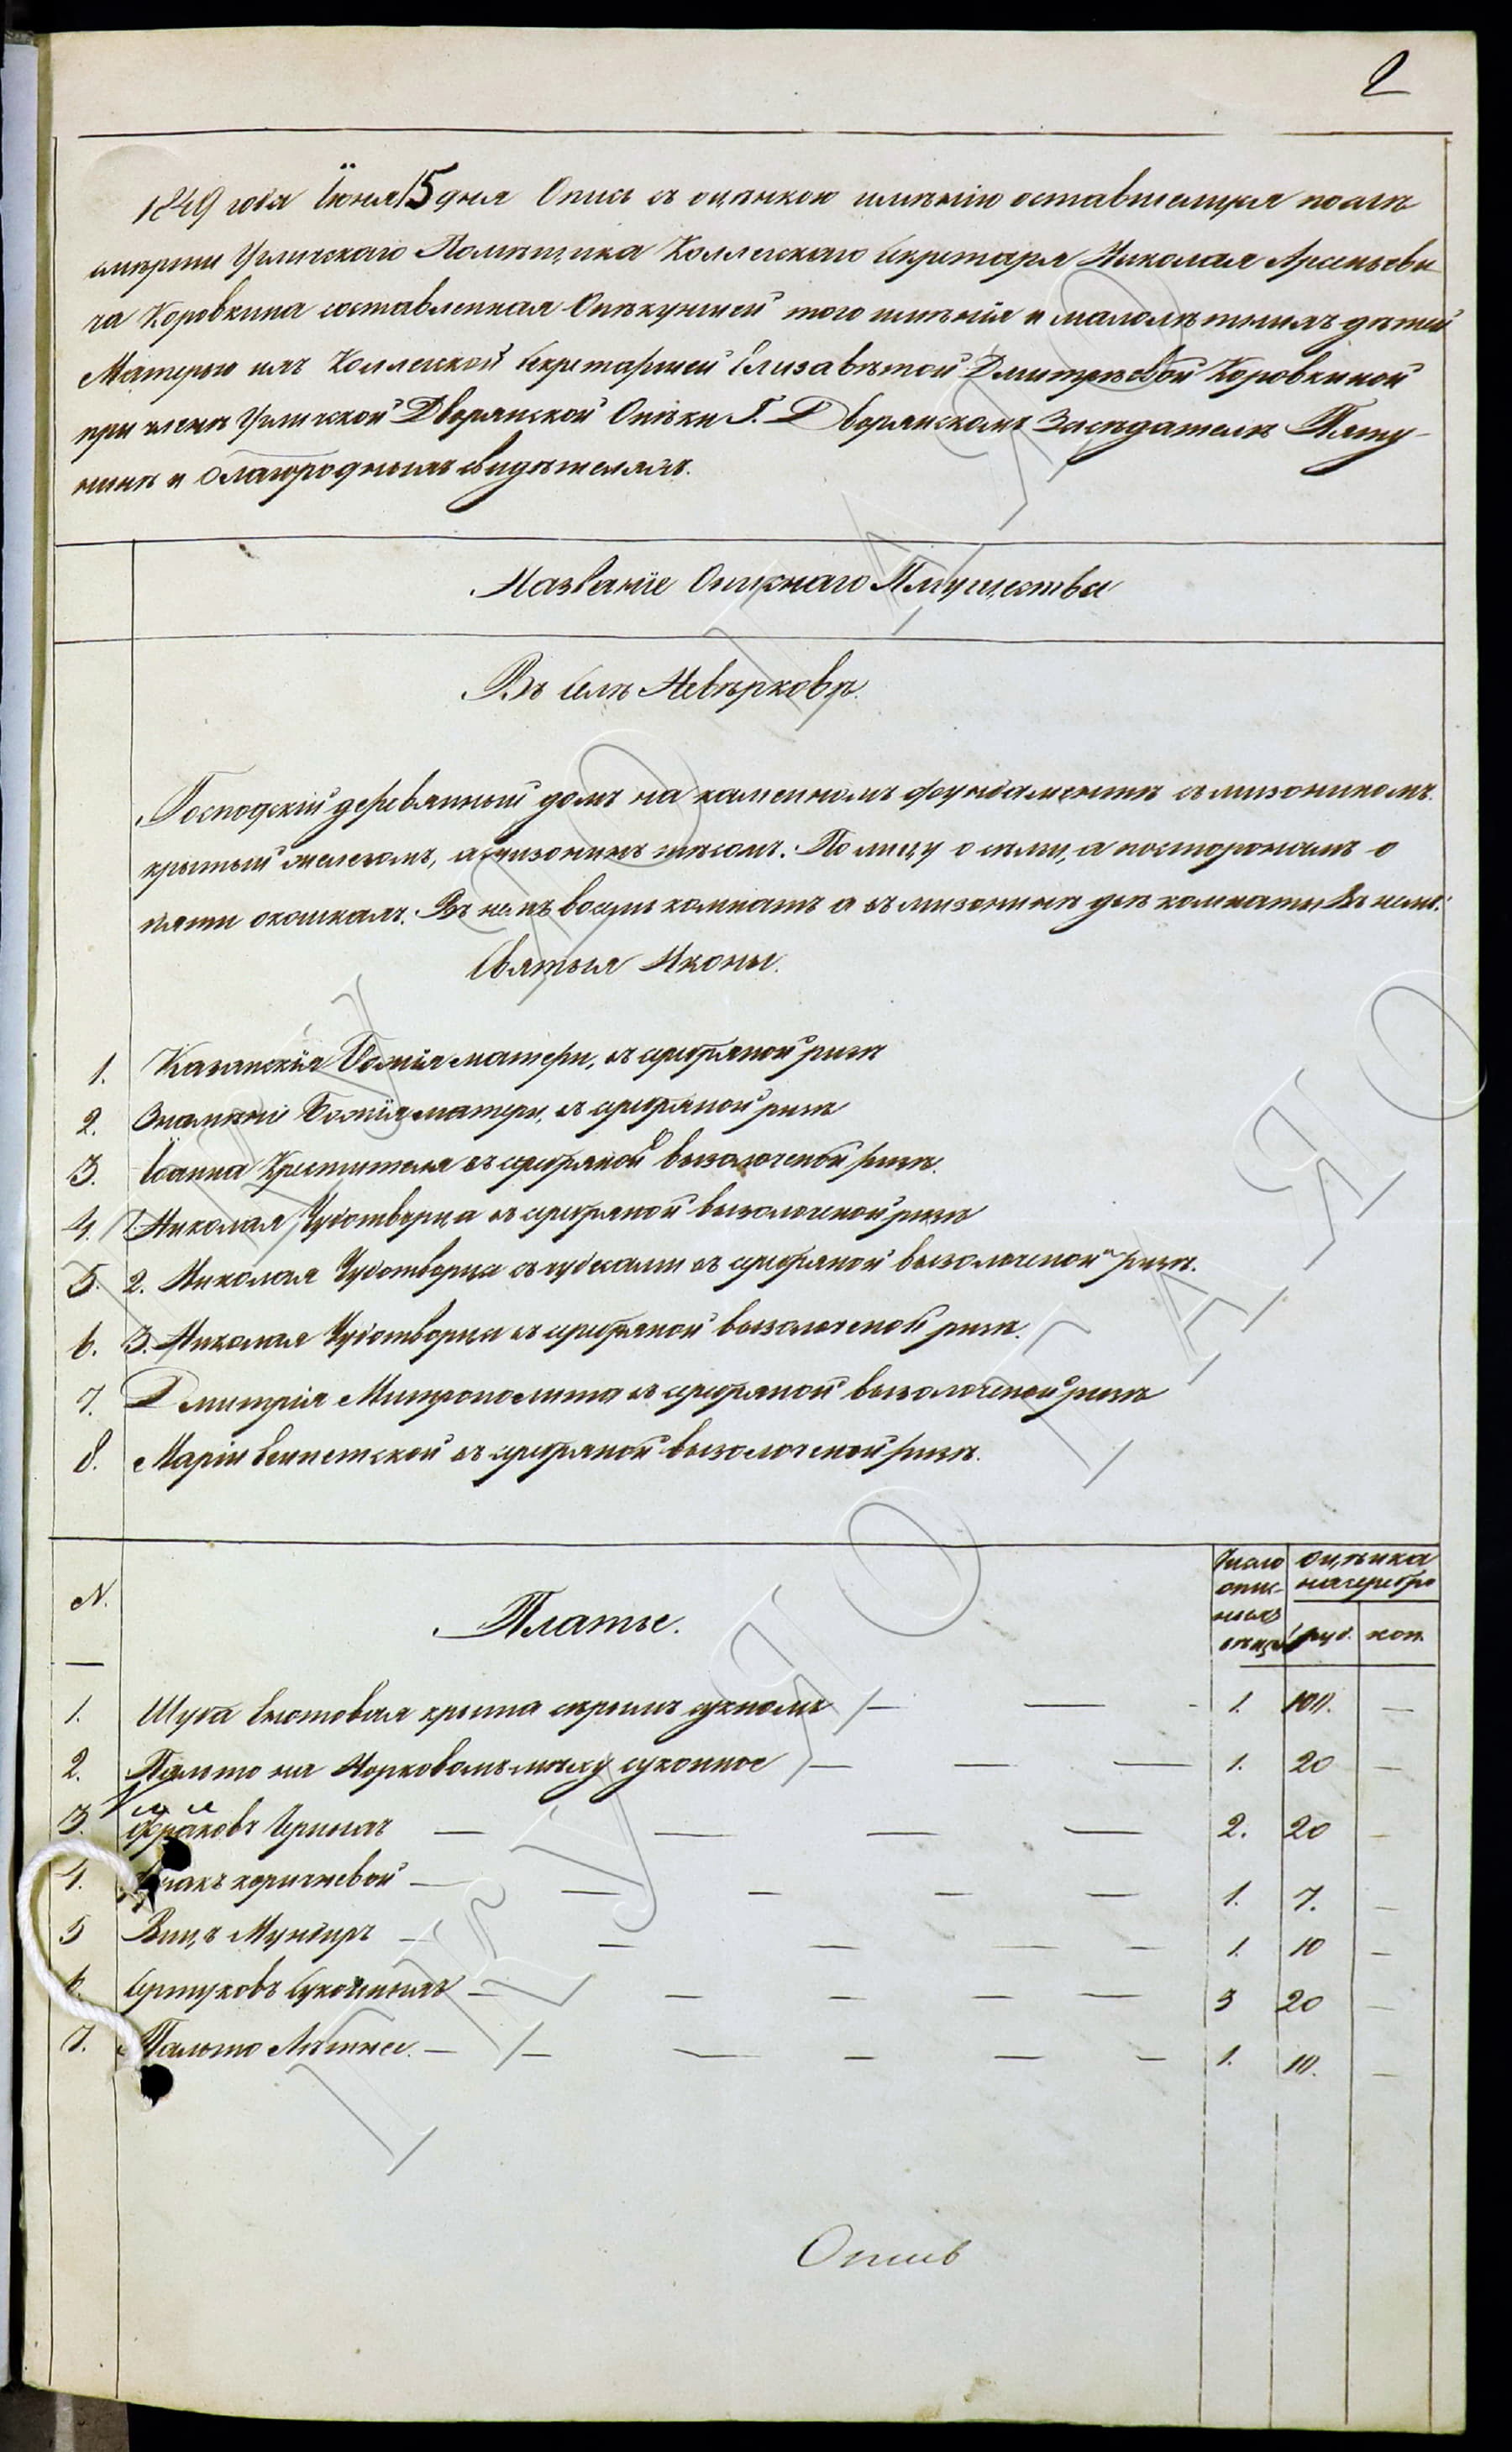 2
1849 года Іюня 15 дня Опись съ оцѣнкою имѣнію оставшемуся послѣ
смерти Угличскаго Помѣщика Коллежскаго Секретаря Николая Арсеньеви
ча Коровкина составленная Опѣкуншей того имѣнія и малолѣтнихъ дѣтей
Матерью ихъ Коллежской Секретаршей Елизавѣтой Дмитрѣевой Коровкиной
при членѣ Угличской Дворянской Опѣки Г. Дворянскомъ Засѣдателѣ
и благородныхъ свидѣтеляхъ.
Названіе Описнаго Имущества
Въ Селѣ Невѣрковѣ.
Господскій деревянный домъ на каменномъ фундаментѣ съ мизониномъ.
крытый желѣзомъ, а мизонинъ тѣсомъ. По лицу о семи, а посторонамъ о
пяти окошкахъ. Въ немъ восемь комнатъ а въ мизонинѣ двѣ комнаты Въ немъ:
Святыя Иконы.
1. Казанскія Божія матери, въ серебряной ризѣ
2. Знаменіе Божія матери, въ серебряной ризѣ
3. Іоанна Крестителя въ серебряной вызолоченой ризѣ.
4. 1. Николая Чудотворца въ серебряной вызолоченой ризѣ
5. 2. Николая Чудотворца съ чудесами въ серебряной вызолоченой ризѣ.
6. 3. Николая Чудотворца въ серебряной вызолоченой ризѣ.
7. Дмитрія Митрополита въ серебряной вызолоченой ризѣ
8. Маріи Египетской въ серебряной вызолоченой ризѣ.
N. Платье. Число опис-ныхъ вѣщей Оцѣнка на серебро руб. коп.
1. Шуба Енотовая крыта сѣрымъ сукномъ — — - 1. 100. —
2. Пальто на Норковомъ мѣху суконное — — — 1. 20 —
3. Фраковъ Черныхъ — — — — 2. 20 —
4. Фракъ коричневой — — — — — 1. 7. —
5 Вицъ Мундиръ — — — — — 1. 10 —
6. Сертуковъ Суконныхъ — — — — — 3 20 —
7. Пальто Лѣтнее. — — — — — — 1. 10. —
ЯРОГАЯРО
ГКУ ЯО ГАЯО